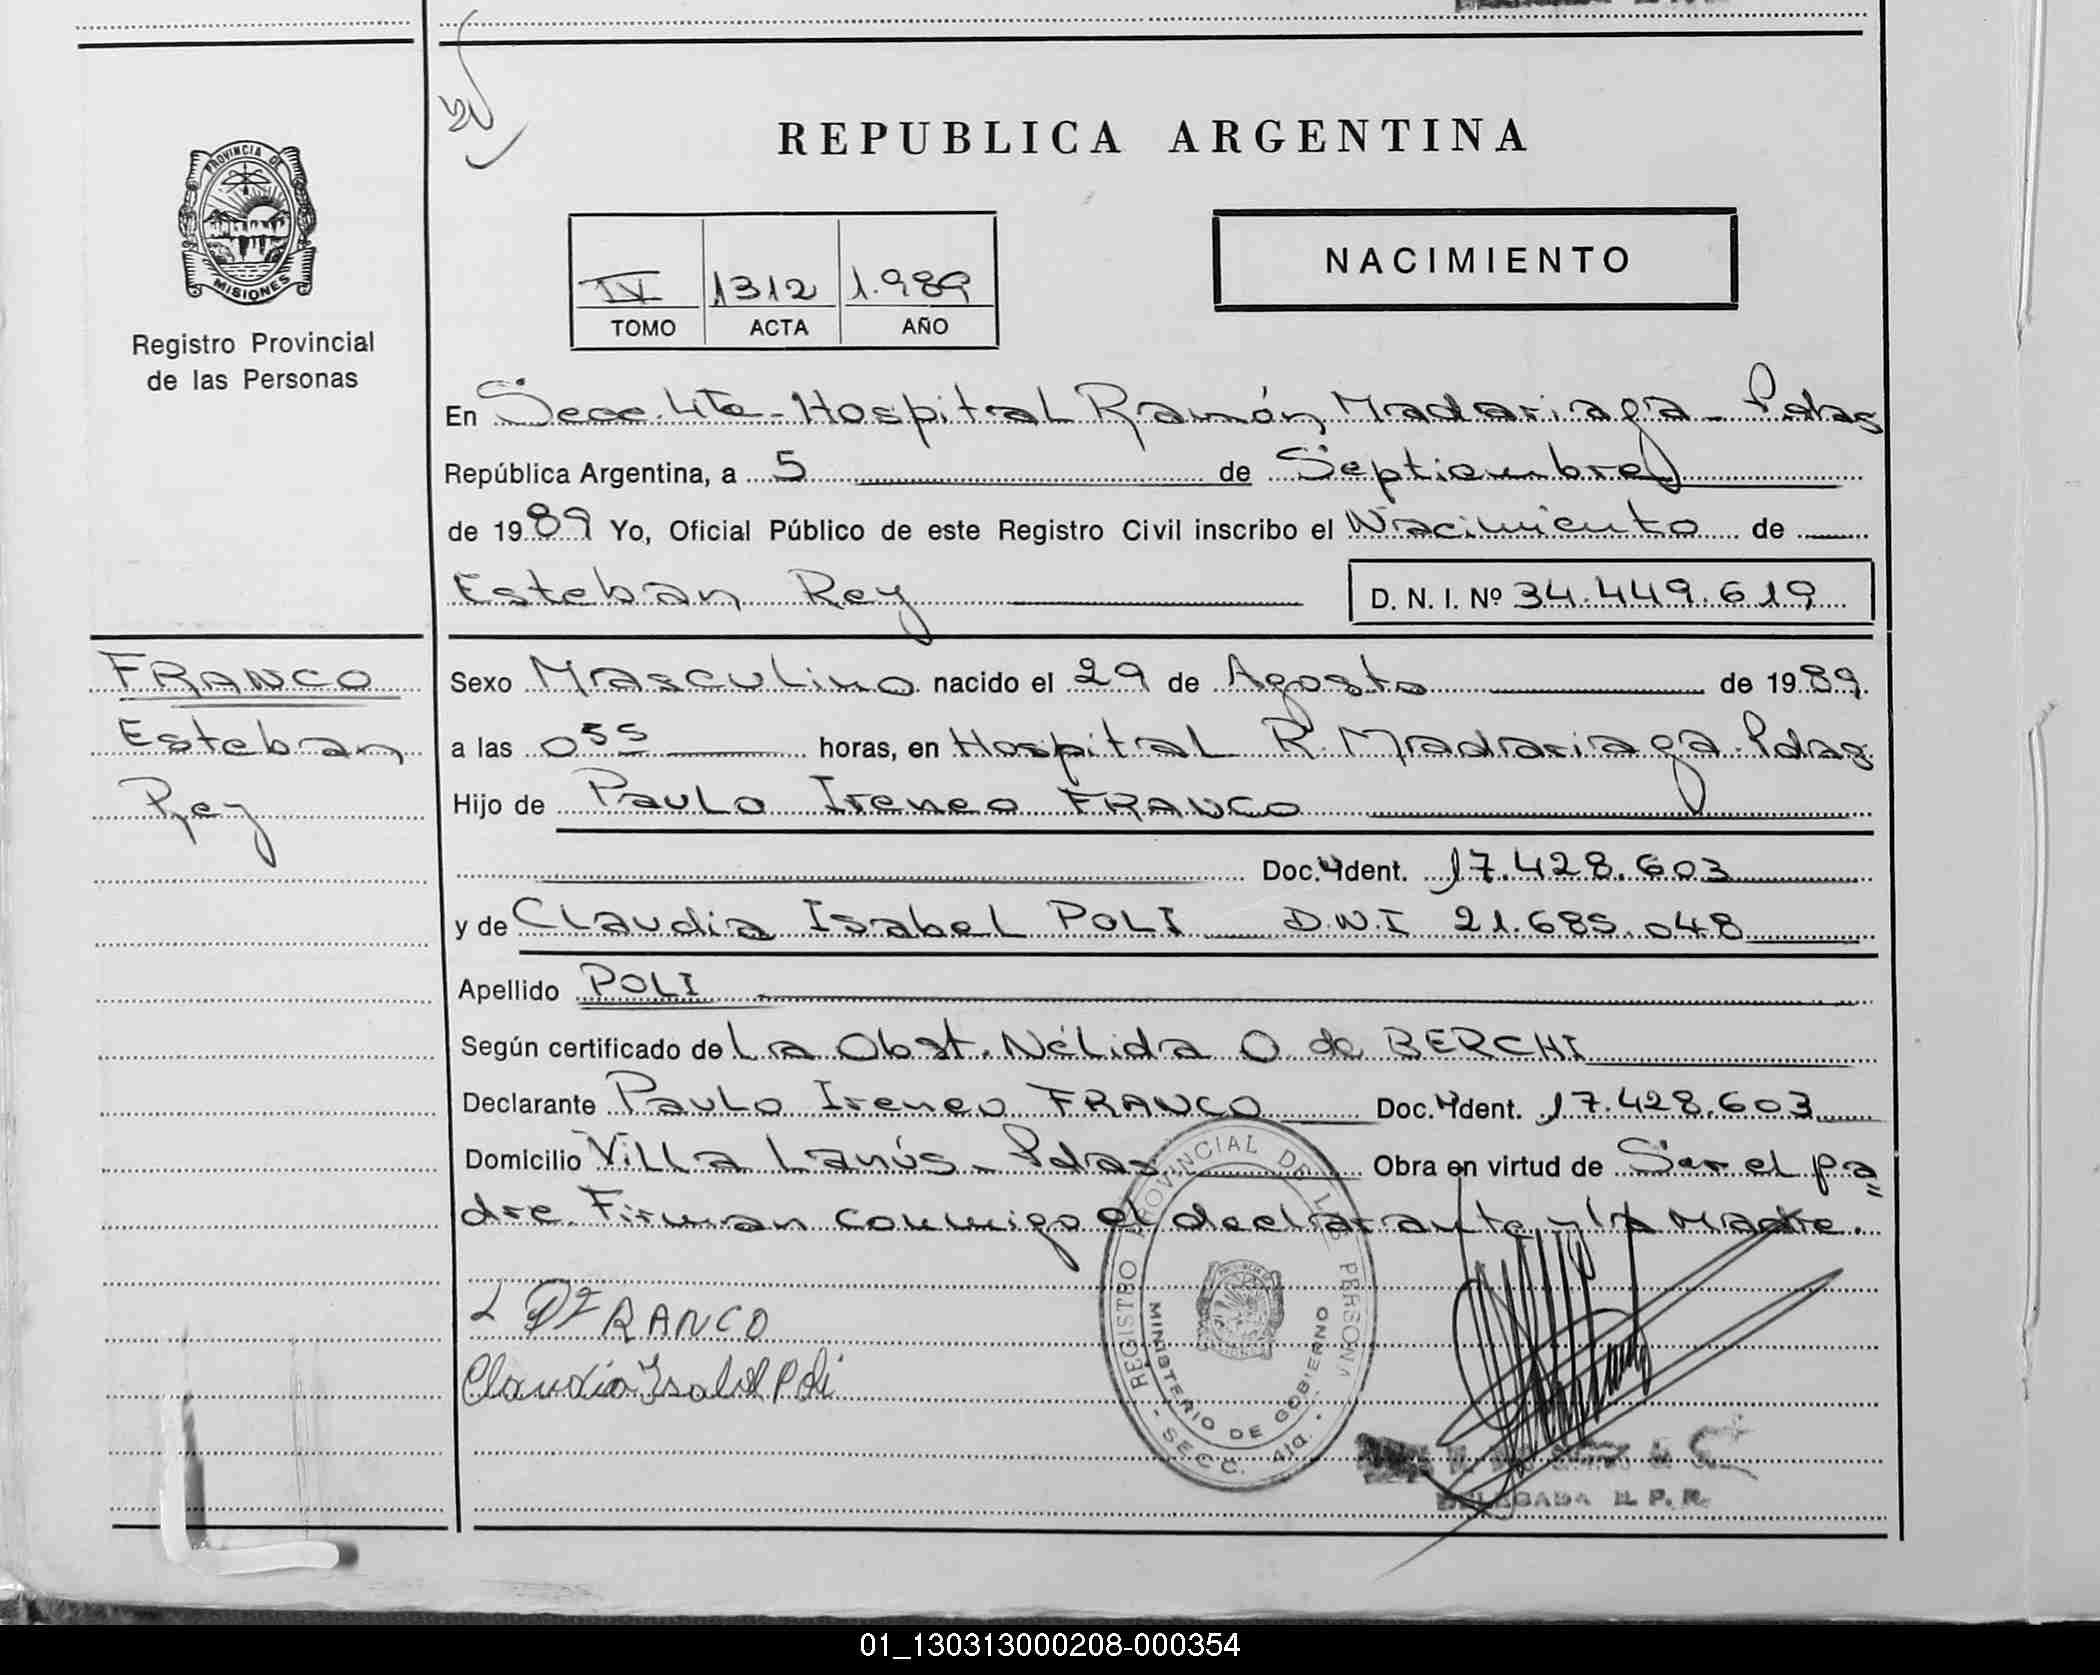 REPUBLICA ARGENTINA
PROVINCIA DE
MISIONES
Registro Provincial
de las Personas
NACIMIENTO
IV 1312 1.989
TOMO ACTA AÑO
En Secc. 4ta - Hospital Ramón Madariaga - Pdas
República Argentina, a 5 de Septiembre
de 1989 Yo, Oficial Público de este Registro Civil inscribo el Nacimiento de
Esteban Rey D. N. I. Nº 34.449.619
FRANCO
Esteban
Rey
Sexo Masculino nacido el 29 de Agosto de 1989.
a las 0 55 horas, en Hospital R. Madariaga - Pdas
Hijo de Paulo Ireneo FRANCO
Doc. Ident. 17.428.603
y de Claudia Isabel POLI D.N.I 21.685.048
Apellido POLI
Según certificado de La Obst. Nélida O de BERCHI
Declarante Paulo Ireneo FRANCO Doc. Ident. 17.428.603
Domicilio Villa Lanús - Pdas Obra en virtud de Ser el pa=
dre. Firman conmigo el declarante y la Madre.
REGISTRO PROVINCIAL DE LAS PERSONAS
MINISTERIO DE GOBIERNO
- SECC. 4ta. -
FRANCO
Claudia Isabel Poli
DELEGADA R. P. P.
01_130313000208-000354